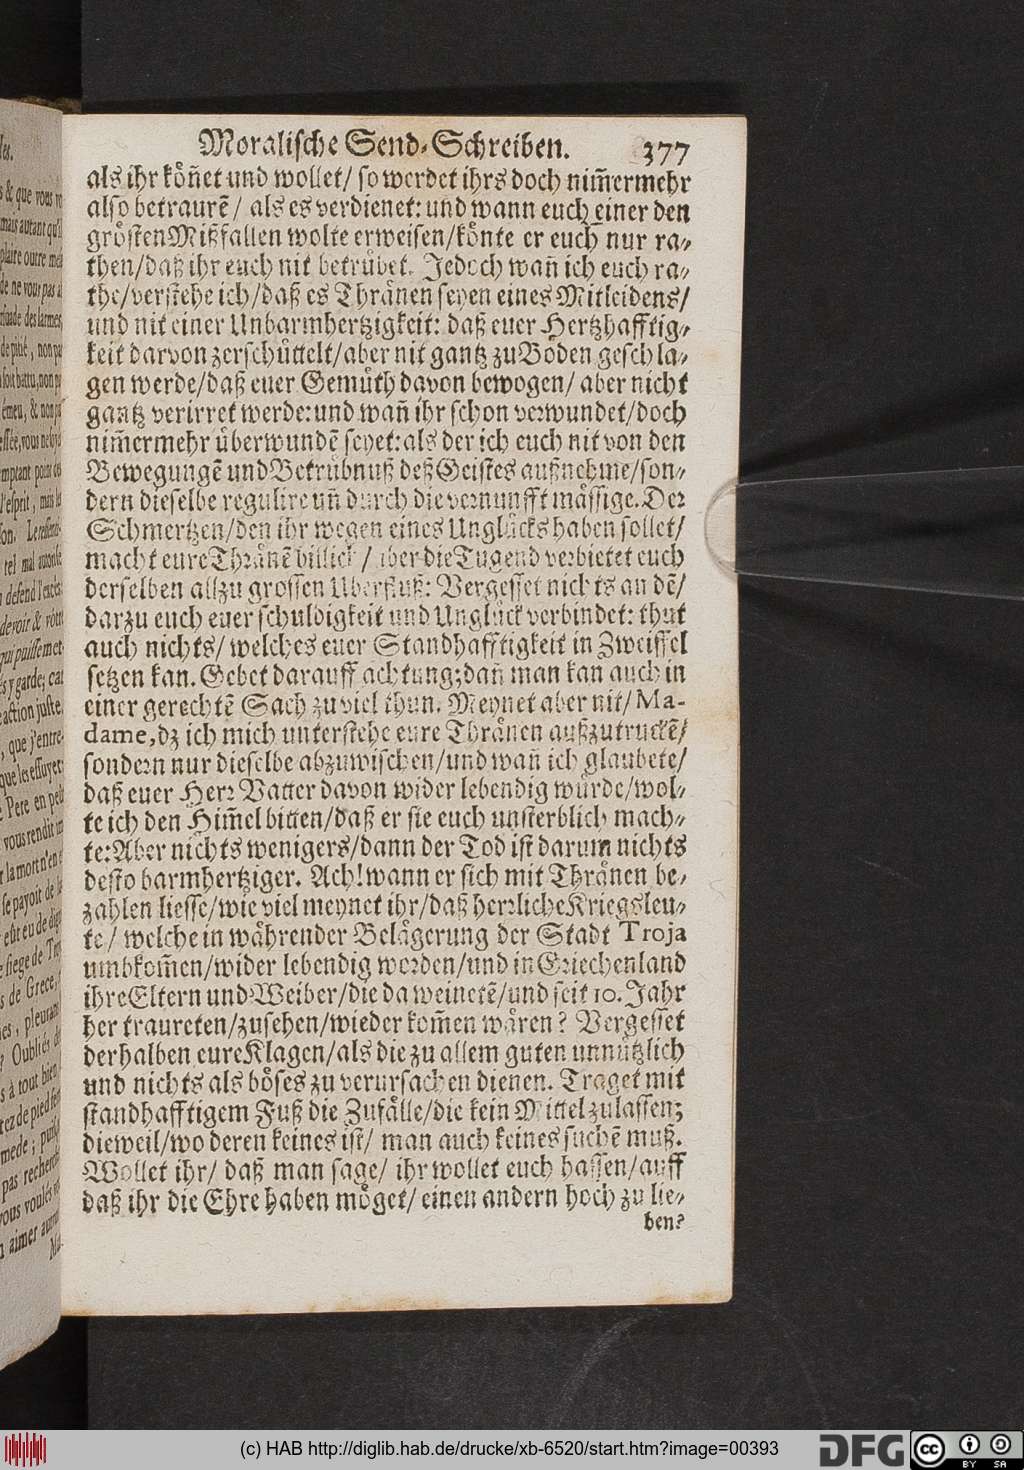 Moralische Send-Schreiben. 377
als ihr köñet und wollet/ so werdet ihrs doch nim̃ermehr
also betraurẽ/ als es verdienet: und wann euch einer den
grösten Mißfallen wolte erweisen/könte er euch nur ra-
then/daß ihr euch nit betrübet. Jedoch wañ ich euch ra-
the/verstehe ich/daß es Thränen seyen eines Mitleidens/
und nit einer Unbarmhertzigkeit: daß euer Hertzhafftig-
keit darvon zerschüttelt/aber nit gantz zu Boden geschla-
gen werde/daß euer Gemüth davon bewogen/ aber nicht
gantz verirret werde: und wañ ihr schon verwundet/doch
nim̃ermehr überwundẽ seyet: als der ich euch nit von den
Bewegungẽ und Betrübnuß deß Geistes außnehme/son-
dern dieselbe regulire uñ durch die vernunfft mässige. Der
Schmertzen/den ihr wegen eines Unglücks haben sollet/
macht eure Thränẽ billich/ aber die Tugend verbietet euch
derselben allzu grossen Uberfluß: Vergesset nichts an dẽ/
darzu euch euer schuldigkeit und Unglück verbindet: thut
auch nichts/ welches euer Standhafftigkeit in Zweiffel
setzen kan. Gebet darauff achtung; dañ man kan auch in
einer gerechtẽ Sach zu viel thun. Meynet aber nit/ Ma-
dame, dz ich mich unterstehe eure Thränen außzutruckẽ/
sondern nur dieselbe abzuwischen/und wañ ich glaubete/
daß euer Herr Vatter davon wider lebendig würde/wol-
te ich den Him̃el bitten/daß er sie euch unsterblich mach-
te: Aber nichts wenigers/dann der Tod ist darum nichts
desto barmhertziger. Ach! wann er sich mit Thränen be-
zahlen liesse/wie viel meynet ihr/daß herrliche Kriegsleu-
te/ welche in währender Belägerung der Stadt Troja
umbkom̃en/wider lebendig worden/und in Griechenland
ihre Eltern und Weiber/die da weinetẽ/und seit 10. Jahr
her traureten/zusehen/wieder kom̃en wären? Vergesset
derhalben eure Klagen/als die zu allem guten unnützlich
und nichts als böses zu verursachen dienen. Traget mit
standhafftigem Fuß die Zufälle/die kein Mittel zulassen;
dieweil/wo deren keines ist/ man auch keines suchẽ muß.
Wollet ihr/ daß man sage/ ihr wollet euch hassen/auff
daß ihr die Ehre haben möget/ einen andern hoch zu lie-
ben?
(c) HAB http://diglib.hab.de/drucke/xb-6520/start.htm?image=00393
DFG
cc
BY SA